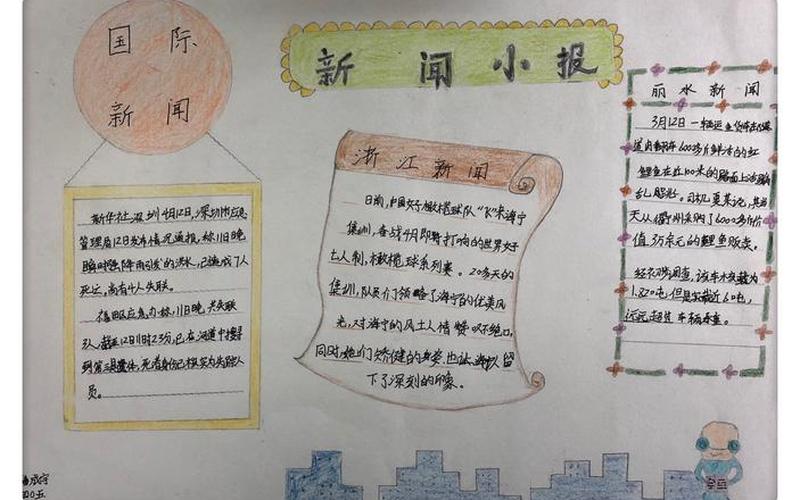 国际
新闻
新闻小报
新华社深圳4月12日,深圳市应急
管理局12日发布情况通报,称11日晚
瞬时强降雨引发的洪水,已造成7人
死亡,尚有4人失联。
福田区应急办称,11日晚共失联
3人,截至12日11时25分,已在河道中搜寻
到第三具遗体,死者身份已核实为失联人
员。
浙江新闻
日前,中国女子橄榄球队“飞”来海宁
集训,备战4月即将打响的世界女子
七人制橄榄球系列赛。20多天的
集训,队员们领略了海宁的优美风
光,对海宁的风土人情赞叹不绝口,
同时,她们矫健的身姿也让海宁人留
下了深刻的印象。
丽水新闻
3月12日一辆运鱼货车
600多斤鲜活的红
鲤鱼在近100米的路面上活蹦
乱跳
天从衢州采购了6000多斤价
值3万余元的鲤鱼贩卖。
经调查,该车木核载为
1.820吨,但是实载近6吨,
远远超过车辆标准。